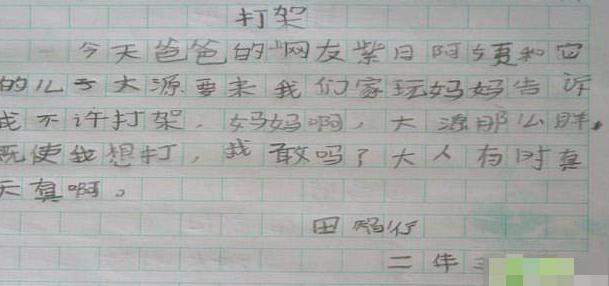 打架
今天爸爸的网友紫日阿姨和它
的儿子大源要来我们家玩妈妈告诉
我不许打架，妈妈啊，大源那么胖，
既使我想打，我敢吗？大人有时真
天真啊。
田
二年